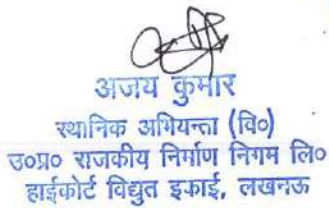 अजय कुमार
स्थानिक अभियन्ता (वि०)
उ०प्र० राजकीय निर्माण निगम लि०
हाईकोर्ट विद्युत इकाई, लखनऊ